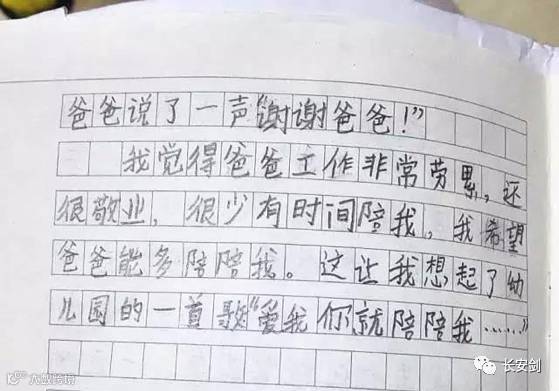 爸爸说了一声“谢谢爸爸！”
我觉得爸爸工作非常劳累，还
很敬业，很少有时间陪我，我希望
爸爸能多陪陪我。这让我想起了幼
儿园的一首歌“爱我你就陪陪我……”
大数跨境
长安剑